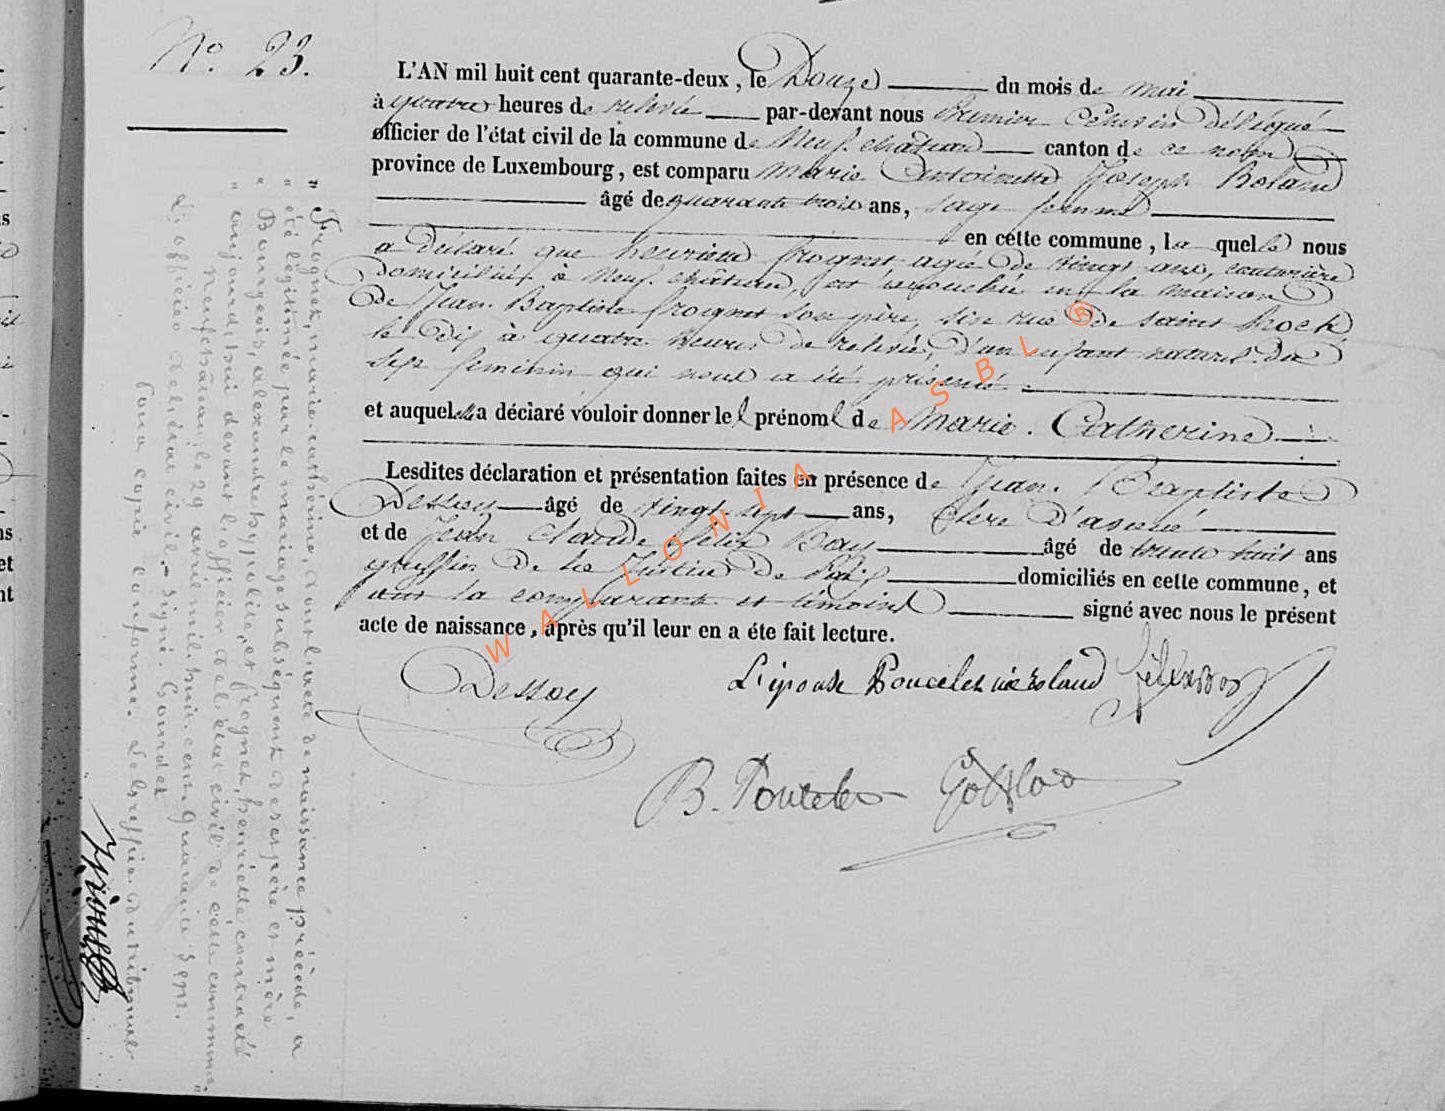 No. 23.
L'AN mil huit cent quarante-deux, le Douze du mois de mai
à quatre heures de relevée par-devant nous Premier Echevin délégué
officier de l'état civil de la commune de Neufchâteau canton de ce nom
province de Luxembourg, est comparu Marie Antoinette Joseph Roland
âgé de quarante trois ans, sage femme
en cette commune, la quelle nous
a déclaré que henriette frognet agée de vingt ans, couturière
domiciliée à Neufchâteau, est accouchée en la maison
de Jean Baptiste frognet son père, sise rue de saint Roch
le dix à quatre heures de relevée, d'un enfant naturel du
sexe feminin qui nous a été présenté
et auquel elle a déclaré vouloir donner le prénom de Marie. Catherine
Lesdites déclaration et présentation faites en présence de Jean. Baptiste
Dessoy âgé de vingt sept ans, Clerc d'avoué
et de Jean Claude félix âgé de trente huit ans
greffier de la Justice de Paix domiciliés en cette commune, et
ont la comparante et témoins signé avec nous le présent
acte de naissance, après qu'il leur en a éte fait lecture.
Dessoy L'épouse Poncelet née roland
B. Poncelet
WALLONIA ASBL ®
" Frognet, marie. cathérine, dont l'acte de naissance précède, a
" été légitimée par le mariage subséquent de ses père et mère
" Bourgeois, alexandre hypolite, et frognet, henriette, contracté
" aujourd'hui devant l'officier de l'état civil de cette commune "
Neufchâteau le 29 avril mil huit cent quarante sept.
L'officier de l'état civil. - signé. Gourdet
Pour copie conforme. Le Greffier du tribunal